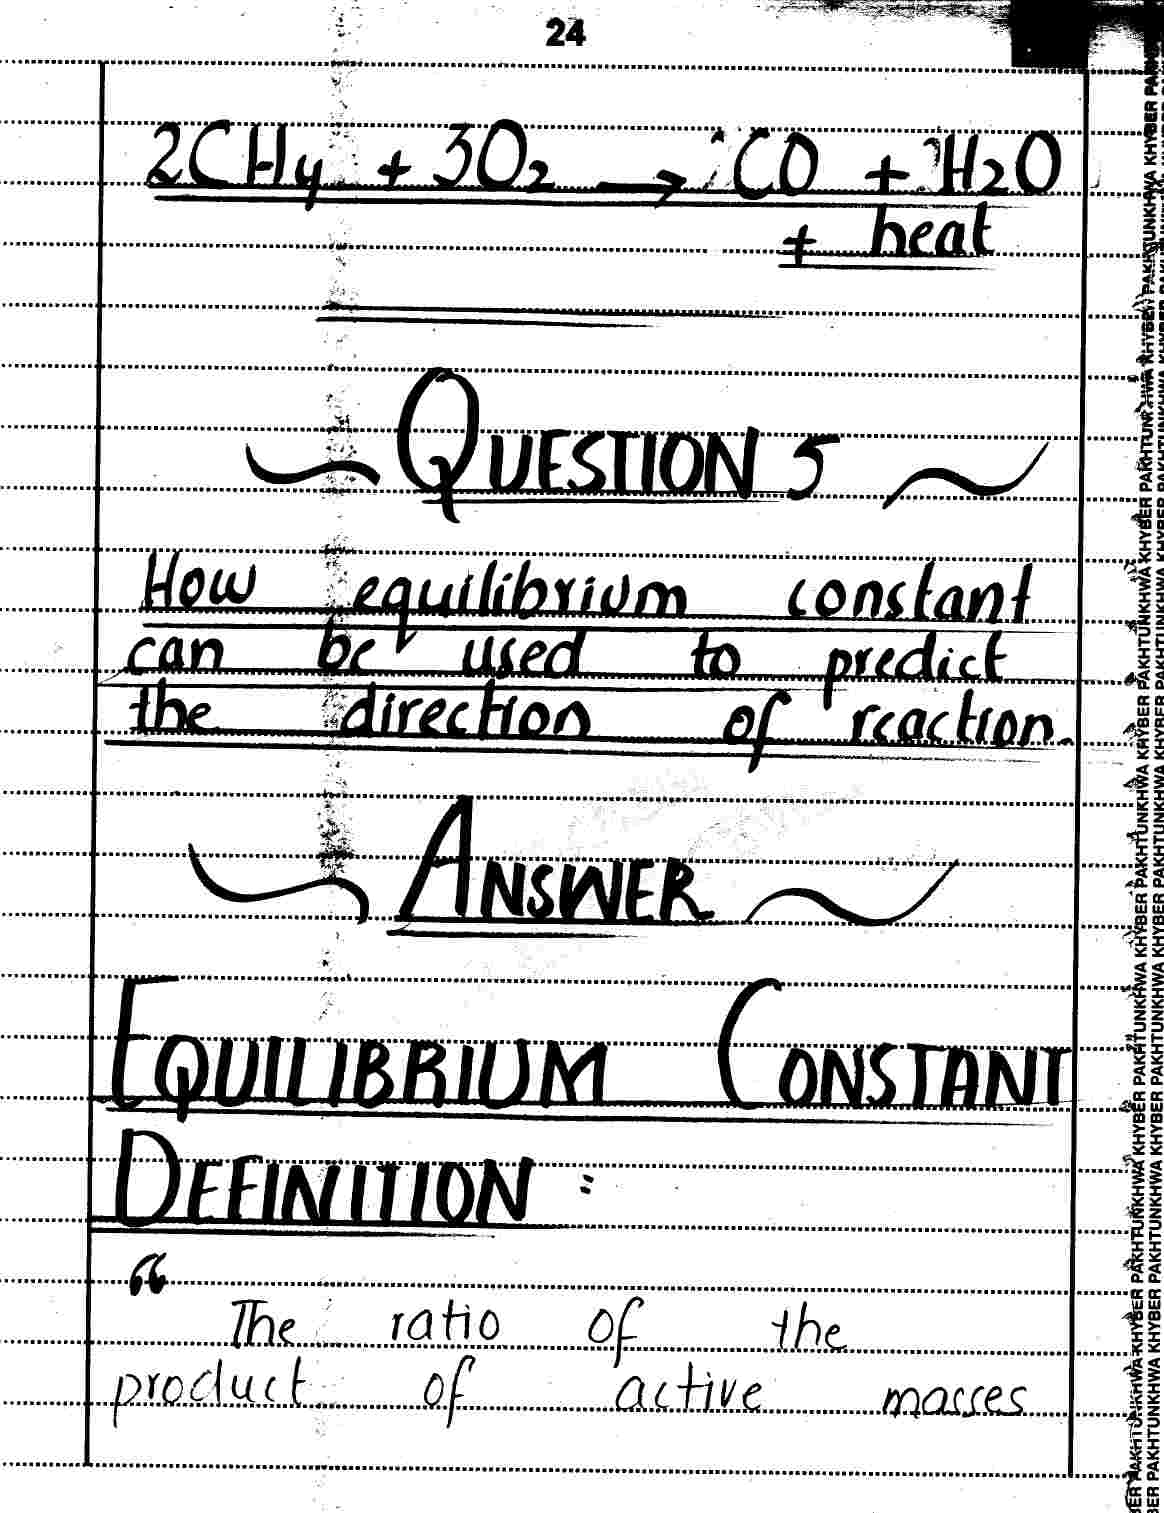 24
2CH4 + 3O2 → CO + H2O
+ heat
QUESTION 5
How equilibrium constant
can be used to predict
the direction of reaction.
ANSWER
EQUILIBRIUM CONSTANT
DEFINITION :
“
The ratio of the
product of active masses
KHYBER PAKHTUNKHWA KHYBER PAKHTUNKHWA KHYBER PAKHTUNKHWA KHYBER PAKHTUNKHWA KHYBER PAKHTUNKHWA KHYBER PAKHTUNKHWA